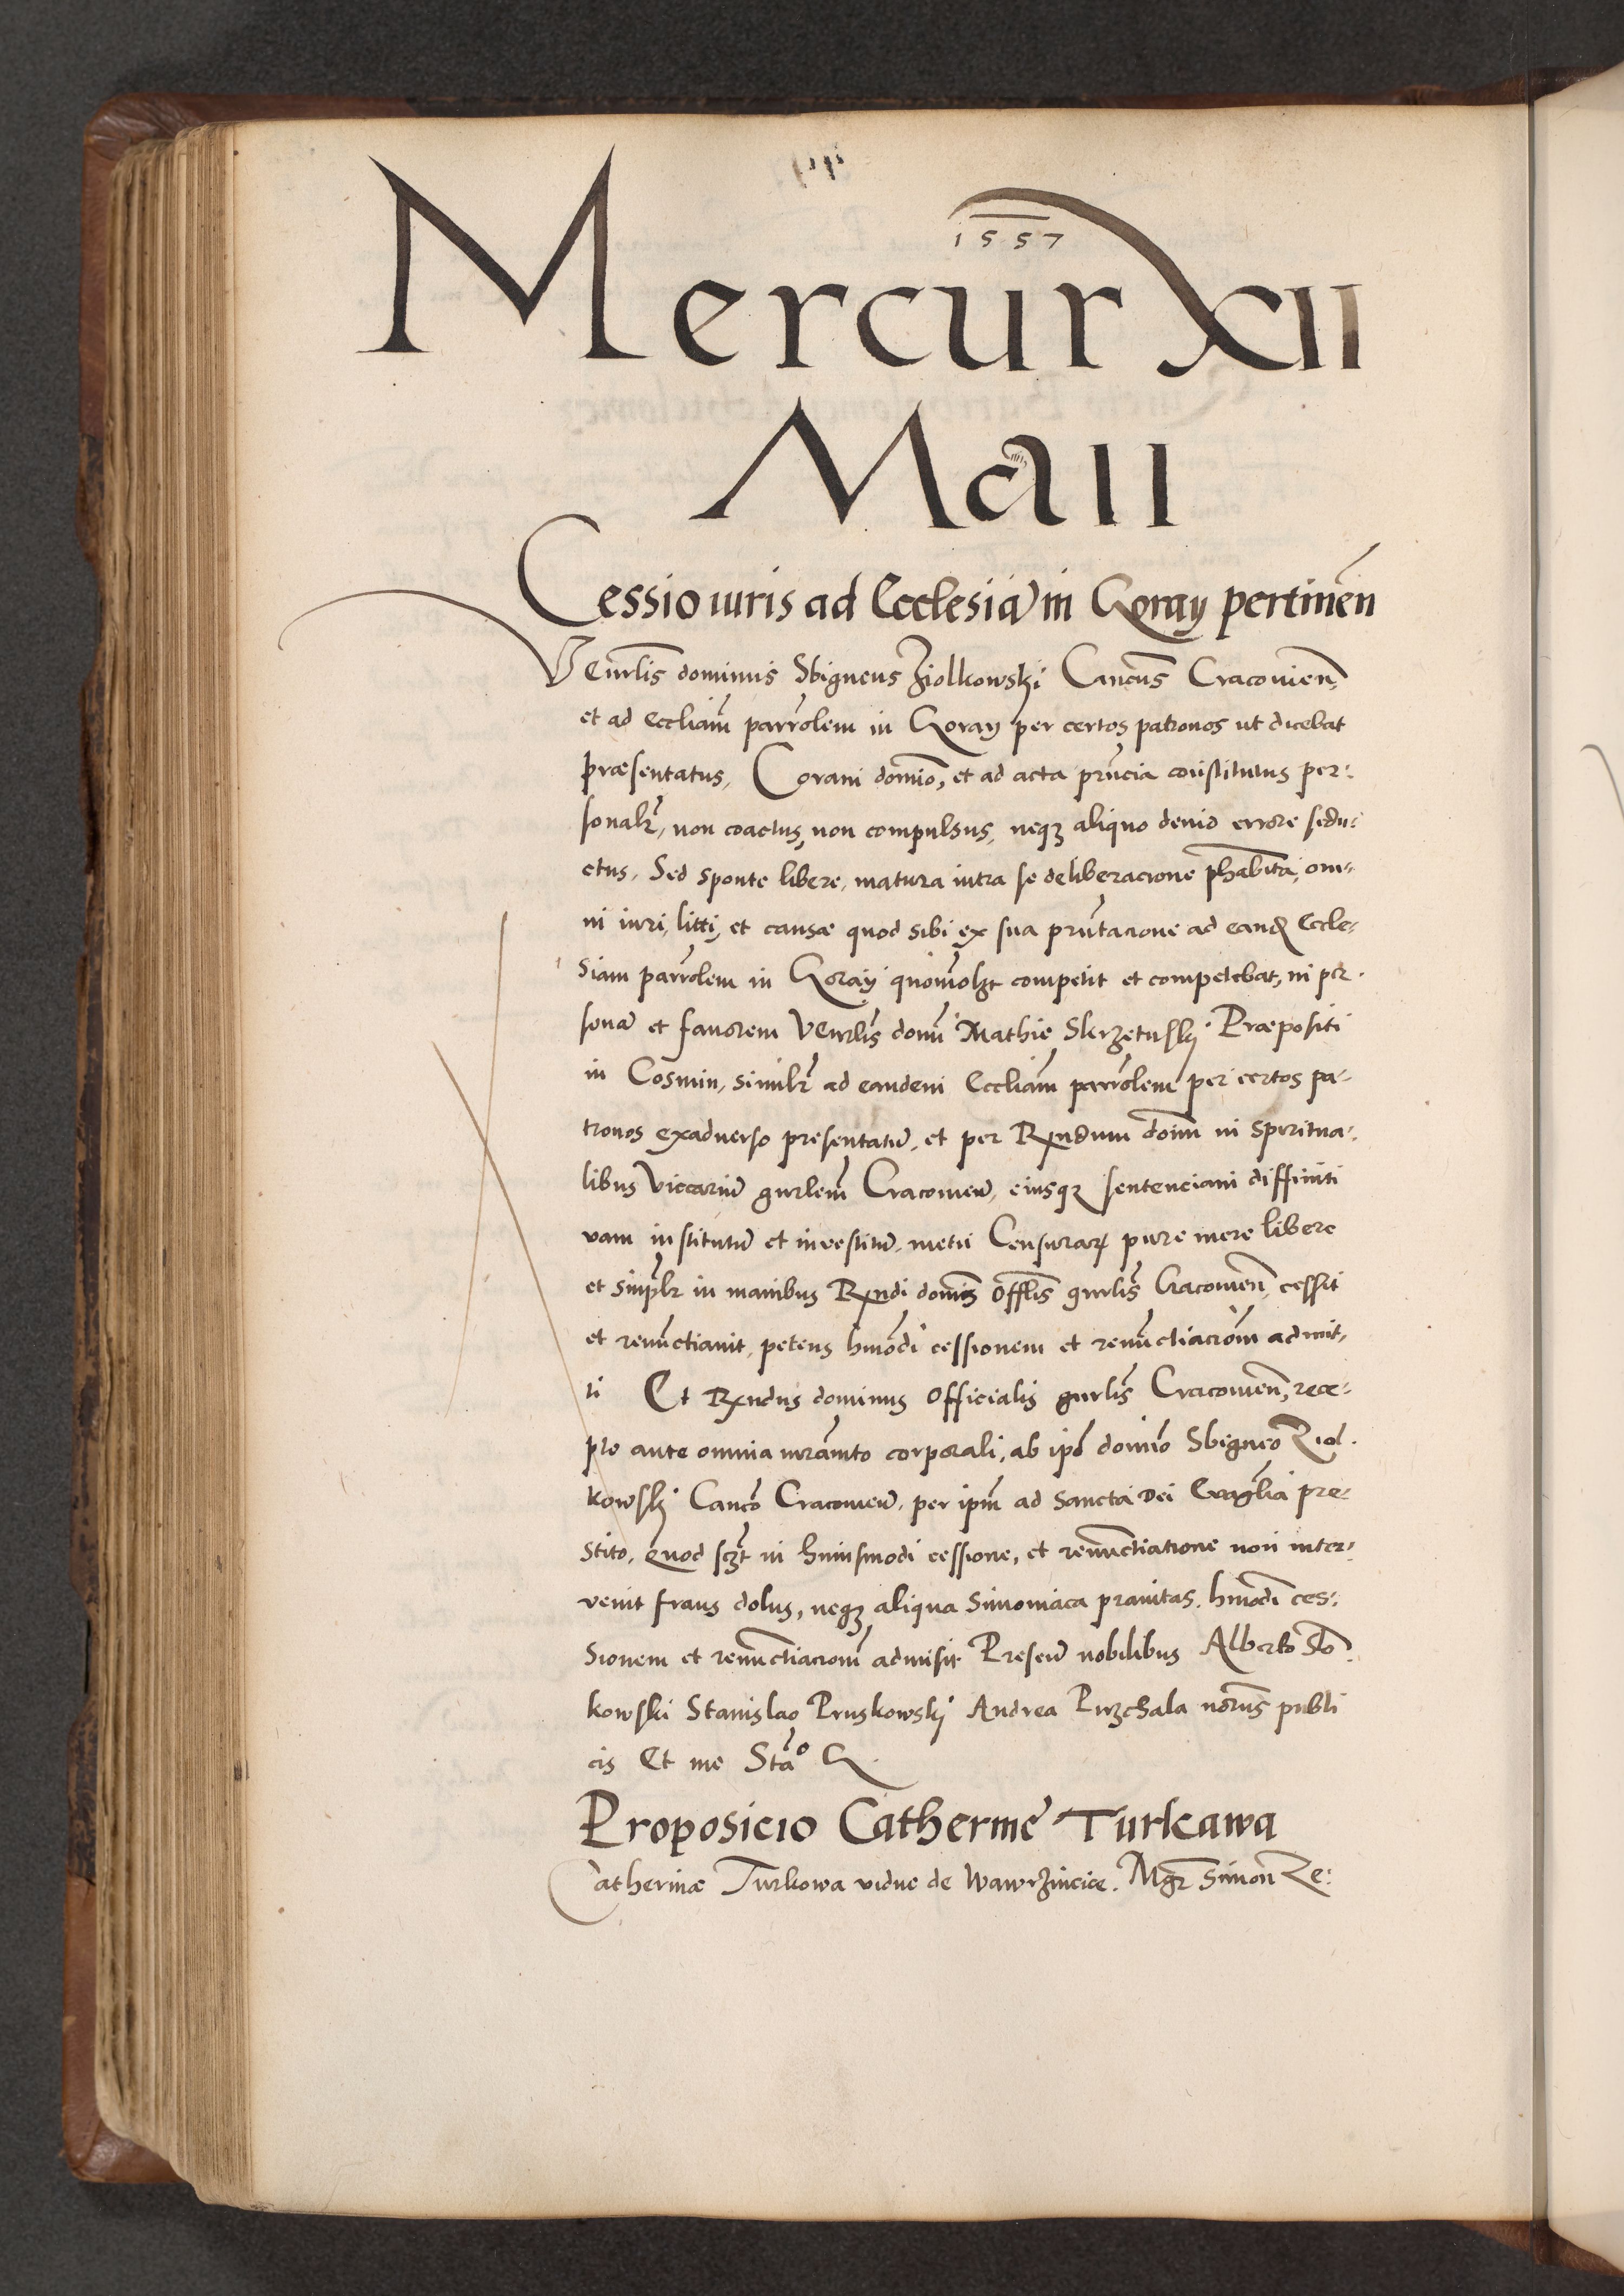 1557
Mercur XII
Maii
Cessio iuris ad Ecclesiā in Goray pertineñ
Venrlīs dominus Sbigneus Ziolkowski Cancūs Cracovieñ
et ad Eccliām parrōlem in Goray per certos patronos ut dicebat
præsentatus, Coram domīo, et ad acta prñcia constitutus per:
sonalr̄, non coactus, non compulsus, neqꝫ aliquo devio errore sedu:
ctus, Sed sponte libere, matura intra se deliberacione p̄habita, om:
ni iuri, litti, et causæ quod sibi ex sua prñtacione ad eand Eccle:
siam parrōlem in Goray quomōlꝫt competit et competebat, in per.
sonā et favorem Venrlīs domī Mathie Skrzetuskj Præpositi
in Cosmin, similr̄ ad eandem Eccliām parrōlem per certos pa:
tronos exadverso presentatū, et per Rxndum domī in Spiritua:
libus Viccariū gnrlem̄ Cracovieñ, eiusqꝫ sentenciam diffiniti
vam institutū et investitū, metū Censuraꝝ pure mere libere
et simplr̄ in manibus Rxndi domīs offlīs gnrlīs Cracovieñ, cessit
et renūctiavit, petens hmōdi cessionem et renūctiaciōm admit,
ti Et Rxndus dominus Officialis gnrlīs Cracovieñ, rece:
pto ante omnia iurām̄to corporali, ab ipō domīo Sbigneo Ziol.
kowskj Cancō Cracovieñ, per ipm̄ ad Sancta Dei Evāglia pre:
stito, Quod scꝫt in huiusmodi cessione, et renūctiatione non inter:
venit fraus dolus, neqꝫ aliqua Simoniaca pravitas, hmōdi ces:
sionem et renūctiaciom̄ admisit Preseñ nobilibus Alberto Slo
kowski Stanislao Pruskowskj Andrea Puzchala norīus publi
cis Et me Stāo G
Proposicio Catherine Turkawa
Catherinæ Turkowa vidue de Wawrzincice. Mgr̄ Simon Ze: